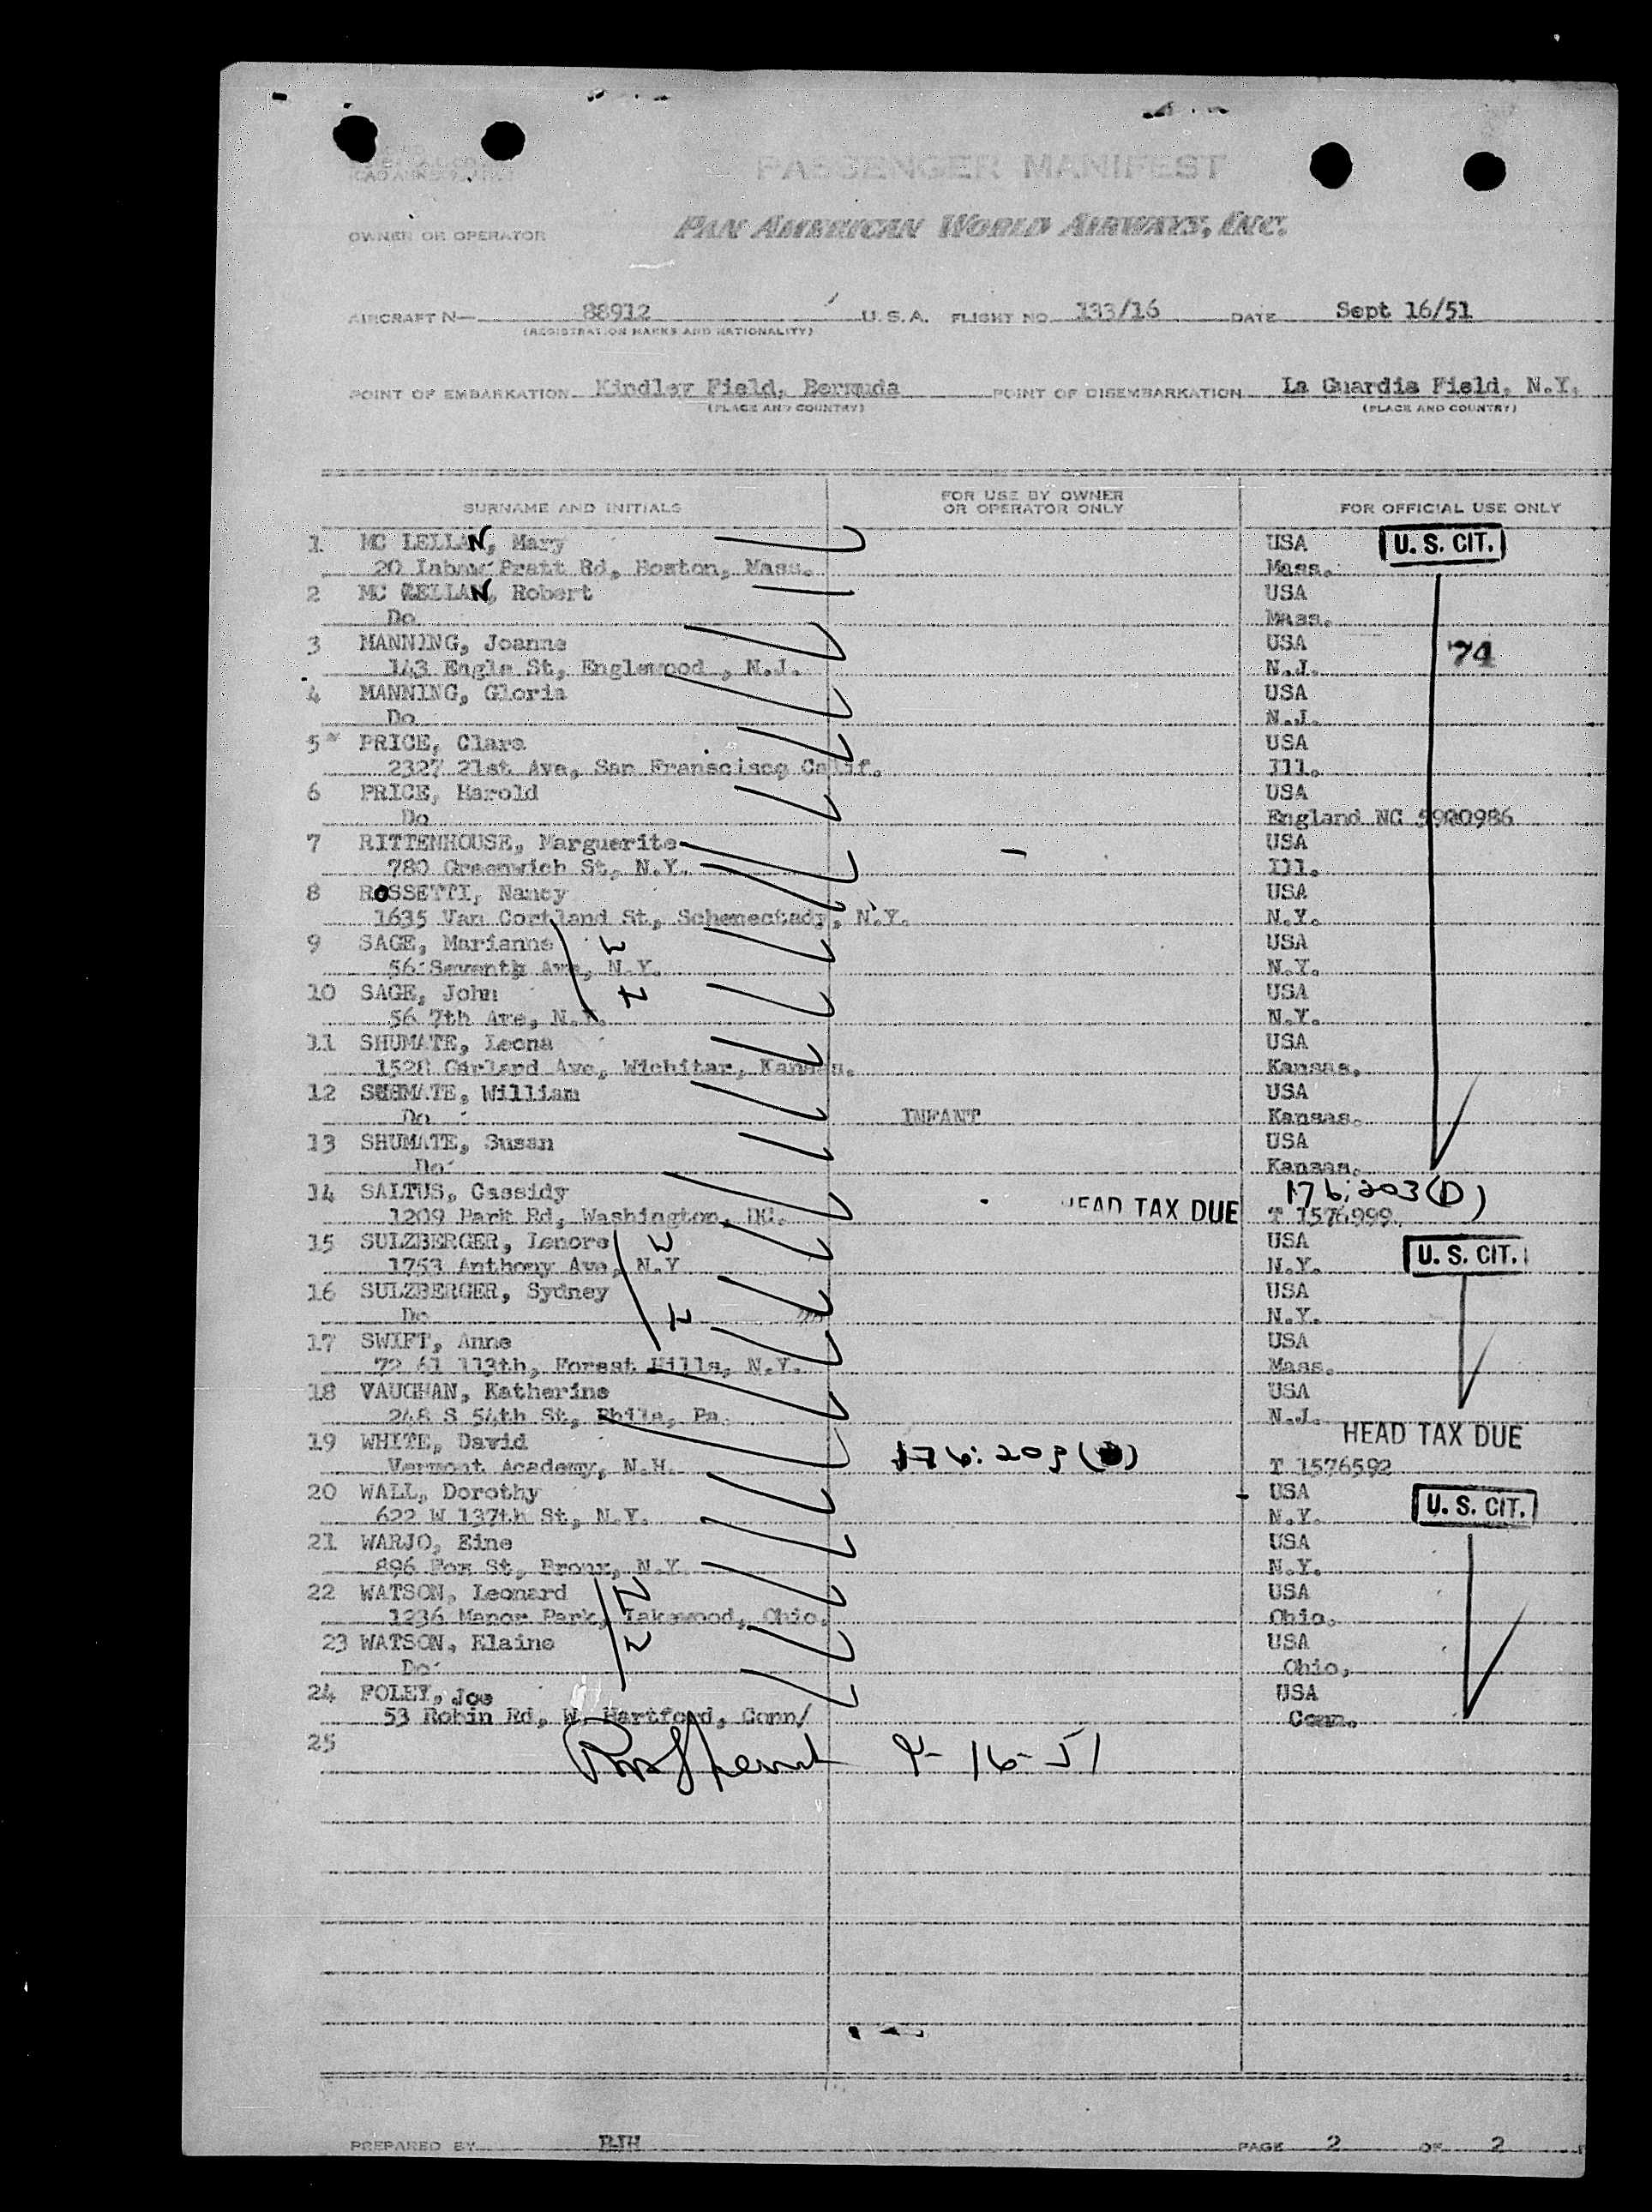 PASSENGER MANIFEST
OWNER OR OPERATOR PAN AMERICAN WORLD AIRWAYS, INC.
AIRCRAFT N— 88912 U.S.A. FLIGHT NO. 133/16 DATE Sept 16/51
(REGISTRATION MARKS AND NATIONALITY)
POINT OF EMBARKATION Kindley Field, Bermuda POINT OF DISEMBARKATION La Guardia Field, N.Y.
(PLACE AND COUNTRY) (PLACE AND COUNTRY)
SURNAME AND INITIALS FOR USE BY OWNER OR OPERATOR ONLY FOR OFFICIAL USE ONLY
1 MC LELLAN, Mary USA U. S. CIT.
20 Pratt Rd, Boston, Mass. Mass.
2 MC LELLAN, Robert USA
Do Mass.
3 MANNING, Joanne USA 74
143 Engle St, Englewood , N.J. N.J.
4 MANNING, Gloria USA
Do N.J.
5 PRICE, Clara USA
2327 21st Ave, San Franscisco Calif. Ill.
6 PRICE, Harold USA
Do England NC 5920986
7 RITTENHOUSE, Marguerite USA
780 Greenwich St, N.Y. Ill.
8 ROSSETTI, Nancy USA
1635 Van Cortland St, Schenectady, N.Y. N.Y.
9 SAGE, Marianne USA
56 Seventh Ave, N.Y. N.Y.
10 SAGE, John USA
56 7th Ave, N.Y. N.Y.
11 SHUMATE, Leona USA
1528 Garland Ave, Wichitar, Kansas. Kansas.
12 SHUMATE, William USA
Do INFANT Kansas.
13 SHUMATE, Susan USA
Do Kansas.
14 SALTUS, Cassidy 176:203(D)
1209 Park Rd, Washington, DC. HEAD TAX DUE T 1576999
15 SULZBERGER, Lenore USA U. S. CIT.
1753 Anthony Ave, N.Y N.Y.
16 SULZBERGER, Sydney USA
Do N.Y.
17 SWIFT, Anne USA
72 61 113th, Forest Hills, N.Y. Mass.
18 VAUGHAN, Katherine USA
248 S 54th St, Phila, Pa. N.J.
19 WHITE, David 176:203() HEAD TAX DUE
Vermont Academy, N.H. T 1576592
20 WALL, Dorothy USA U. S. CIT.
622 W 137th St, N.Y. N.Y.
21 WARJO, Eine USA
896 Fox St, Bronx, N.Y. N.Y.
22 WATSON, Leonard USA
1236 Manor Park, Lakewood, Ohio. Ohio.
23 WATSON, Elaine USA
Do Ohio.
24 FOLEY, Joe USA
53 Robin Rd, W. Hartford, Conn/ Conn.
25
9-16-51
PREPARED BY PAGE 2 OF 2